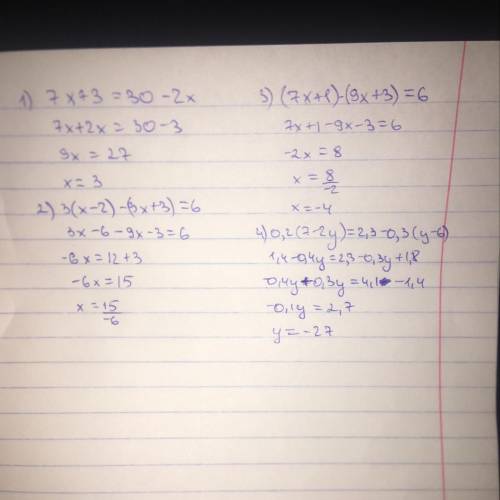 1) 7x+3=30-2x
7x+2x=30-3
9x=27
x=3
2) 3(x-2)-(9x+3)=6
3x-6-9x-3=6
-6x=12+3
-6x=15
x=15/-6
3) (7x+1)-(9x+3)=6
7x+1-9x-3=6
-2x=8
x=8/-2
x=-4
4) 0,2(7-2y)=2,3-0,3(y-6)
1,4-0,4y=2,3-0,3y+1,8
-0,4y+0,3y=4,1-1,4
-0,1y=2,7
y=-27